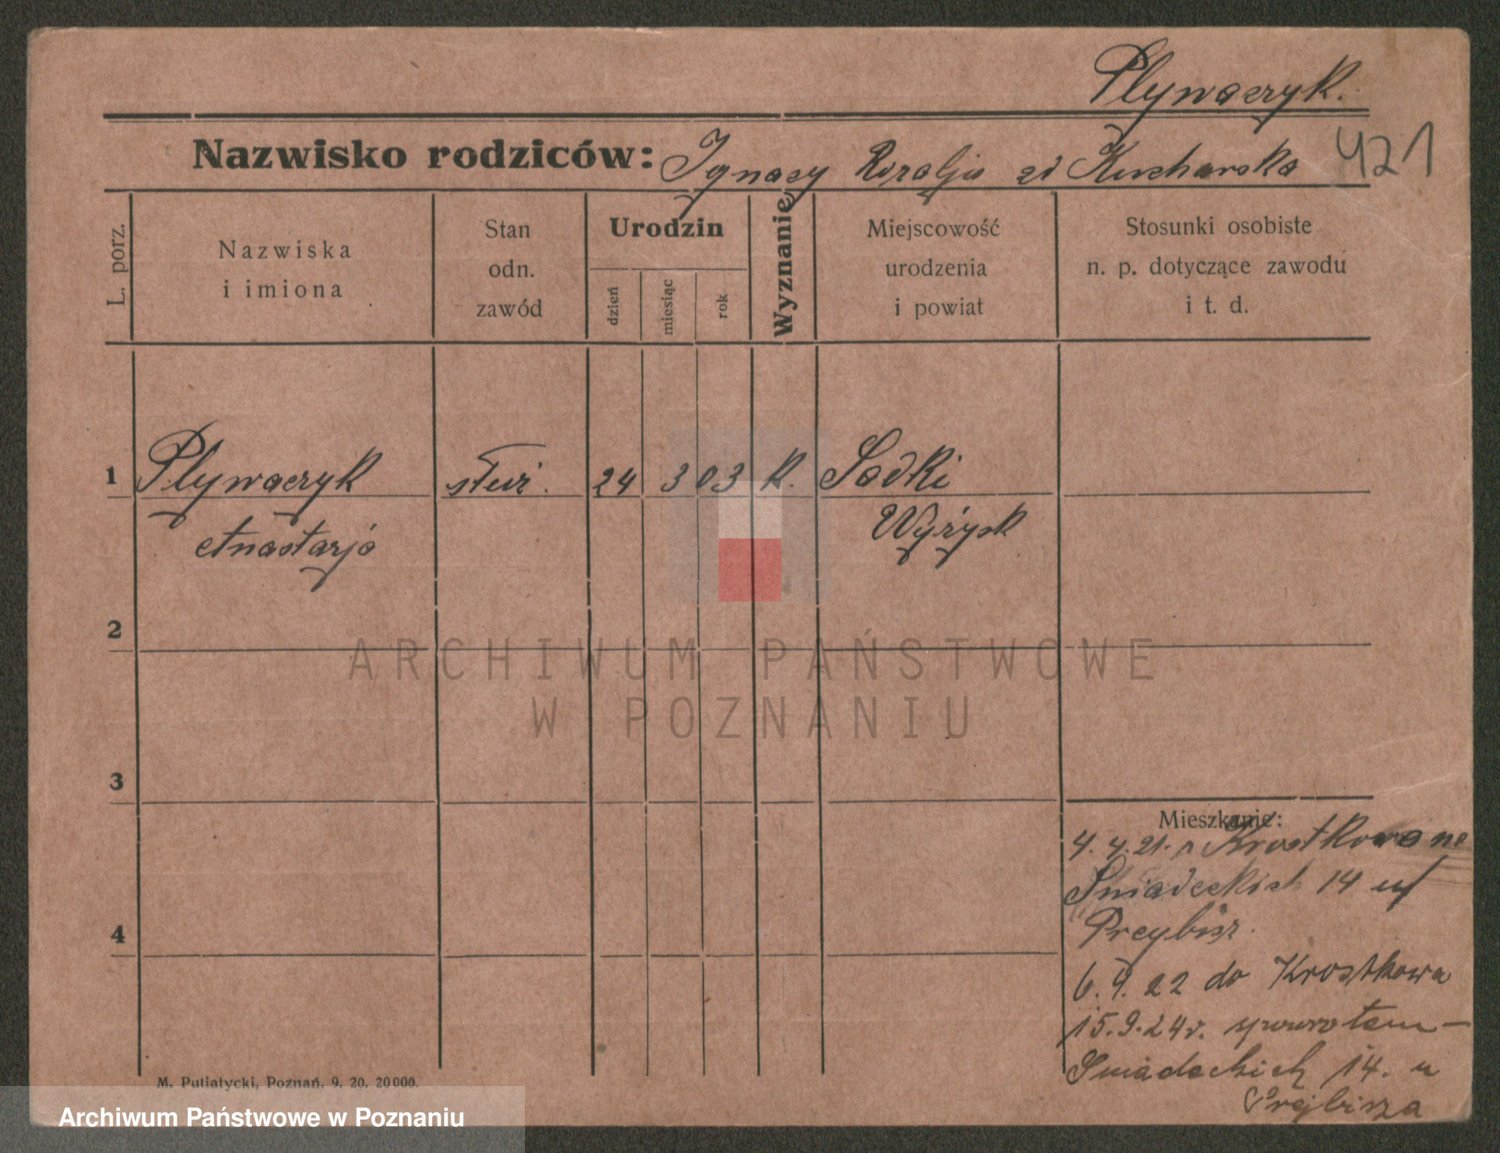 Pływaczyk.
Nazwisko rodziców: Ignacy Rozalja zd Kucharska 421
L. porz.
Nazwiska
i imiona
Stan
odn.
zawód
Urodzin
dzień
miesiąc
rok
Wyznanie
Miejscowość
urodzenia
i powiat
Stosunki osobiste
n. p. dotyczące zawodu
i t. d.
1 Pływaczyk służ. 24 3 03 K. Sadki
Anastazja Wyżysk
2
3
4
Mieszkanie:
4.4.21. z Krostkowa na
Śniadeckich 14 u
Preybisz.
6.9.22 do Krostkowa
15.9.24r. spowrotem -
Śniadeckich 14. u
Prejbisza
M. Putiatycki, Poznań, 9. 20. 20000.
ARCHIWUM PAŃSTWOWE
W POZNANIU
Archiwum Państwowe w Poznaniu